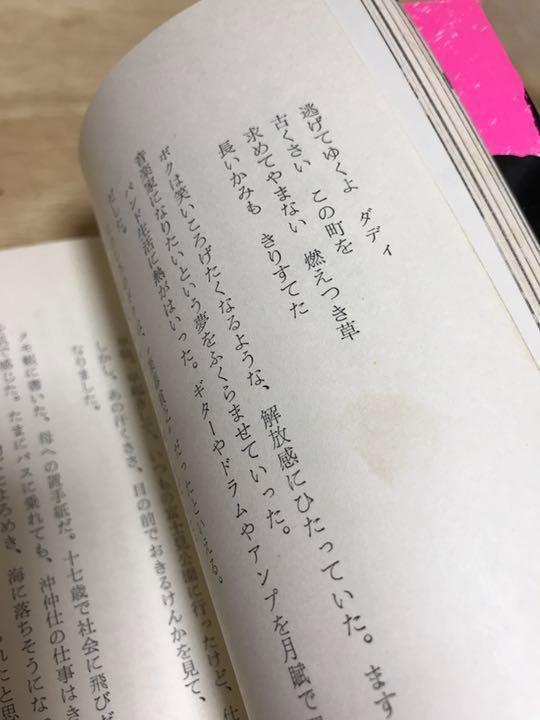 逃げてゆくよ　ダディ
古くさい　この町を
求めてやまない　燃えつき草
長いかみも　きりすてた
ボクは笑いころげたくなるような、解放感にひたっていた。ます
音楽家になりたいという夢をふくらませていった。
バンド生活に熱がはいった。ギターやドラムやアンプを月賦で
だったといえる。
いつもの富士見公園に行ったけど、仕
しかし、あの汗くささ、目の前でおきるけんかを見て、
なりました。
書いた。母への置手紙だ。十七歳で社会に飛びだ
で感じた。たまにバスに乗れても、沖仲仕の仕事はき
よろめき、海に落ちそうにな
れたと思